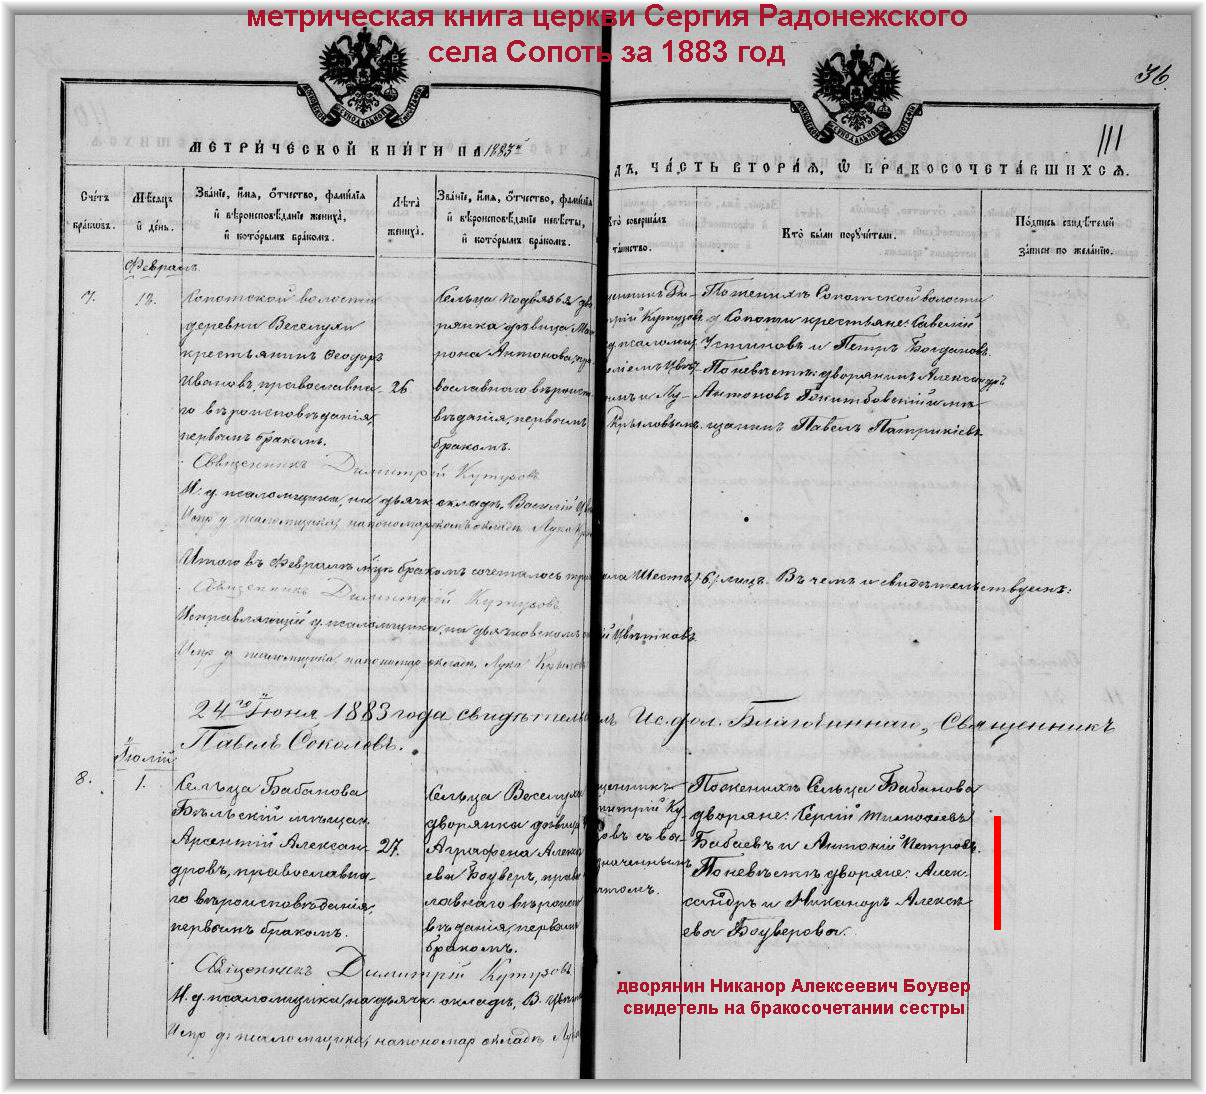 метрическая книга церкви Сергия Радонежского
села Сопоть за 1883 год
36
111
МЕТРИЧЕСКОЙ КНИГИ НА 1883й
ДЪ, ЧАСТЬ ВТОРАЯ, Ѡ БРАКОСОЧЕТАВШИХСЯ.
Счетъ
браковъ.
Мѣсяцъ
и день.
Званіе, имя, отчество, фамилія
и вѣроисповѣданіе жениха,
и которымъ бракомъ.
Лѣта
жениха.
Званіе, имя, отчество, фамилія
и вѣроисповѣданіе невѣсты,
и которымъ бракомъ.
Кто совершалъ
таинство.
Кто были поручители.
Подпись свидѣтелей
записи по желанію.
Февраль
7.
Сопотской волости
деревни Веселухи
крестьянинъ Ѳеодоръ
Ивановъ, православна-
го вѣроисповѣданія,
первымъ бракомъ.
26
Сельца Подвязья дво
рянка дѣвица Мат
рона Антонова, пра
вославнаго вѣроиспо
вѣданія, первымъ
бракомъ.
щенникъ Ди-
трій Кутузов
д. псаломщ.
силіемъ Цвѣт-
Крыловымъ.
По женихѣ Сопотской волости
д. Сопоти крестьяне: Савелій
Устиновъ и Петръ Богдановъ.
По невѣстѣ: дворянинъ Александръ
Антоновъ и мѣ-
щанинъ Павелъ Патрикіевъ
Священникъ Димитрій Кутузовъ
И. д. псаломщика, на дьячк. окладѣ, Василій Цвѣ
Испр. д. псаломщика, на пономарскомъ окладѣ Лука Кры
Итого въ Февралѣ м-цѣ бракомъ сочеталось три
пола шесть /6/ лицъ. Въ чемъ и свидѣтельствуемъ:
Священникъ Димитрій Кутузовъ
Исправляющій д. псаломщика, на дьячковскомъ о
ій Цвѣтковъ
Испр. д. псаломщика, на пономар. окладѣ, Лука Крыловъ
24го Іюня 1883 года свидѣтельс
Ис. дол. Благочиннаго, Священникъ
Павелъ Соколовъ.
Іюлій
8.
1.
Сельца Бабанова
Бѣльскій мѣщан.
Арсентій Александ-
дровъ, православна-
го вѣроисповѣданія,
первымъ бракомъ.
27.
Сельца Веселуха
дворянка дѣвица
Аграфена Алекс
ева Боуверъ, право
лавнаго вѣроиспо
вѣданія, первымъ
бракомъ.
щенникъ
митрій Ку-
зовъ съ вы-
значеннымъ
чтомъ.
По женихѣ Сельца Бабанова
дворяне: Сергій Тимоѳеевъ
Бабаевъ и Антоній Петровъ.
По невѣстѣ дворяне: Алек-
сандръ и Никаноръ Алексѣ
евы Боуверовы.
Священникъ Димитрій Кутузовъ
И. д. псаломщика, на дьячк. окладѣ, В. Цвѣтк
Испр. д. псаломщика, на пономар. окладѣ, Лука
дворянин Никанор Алексеевич Боувер
свидетель на бракосочетании сестры